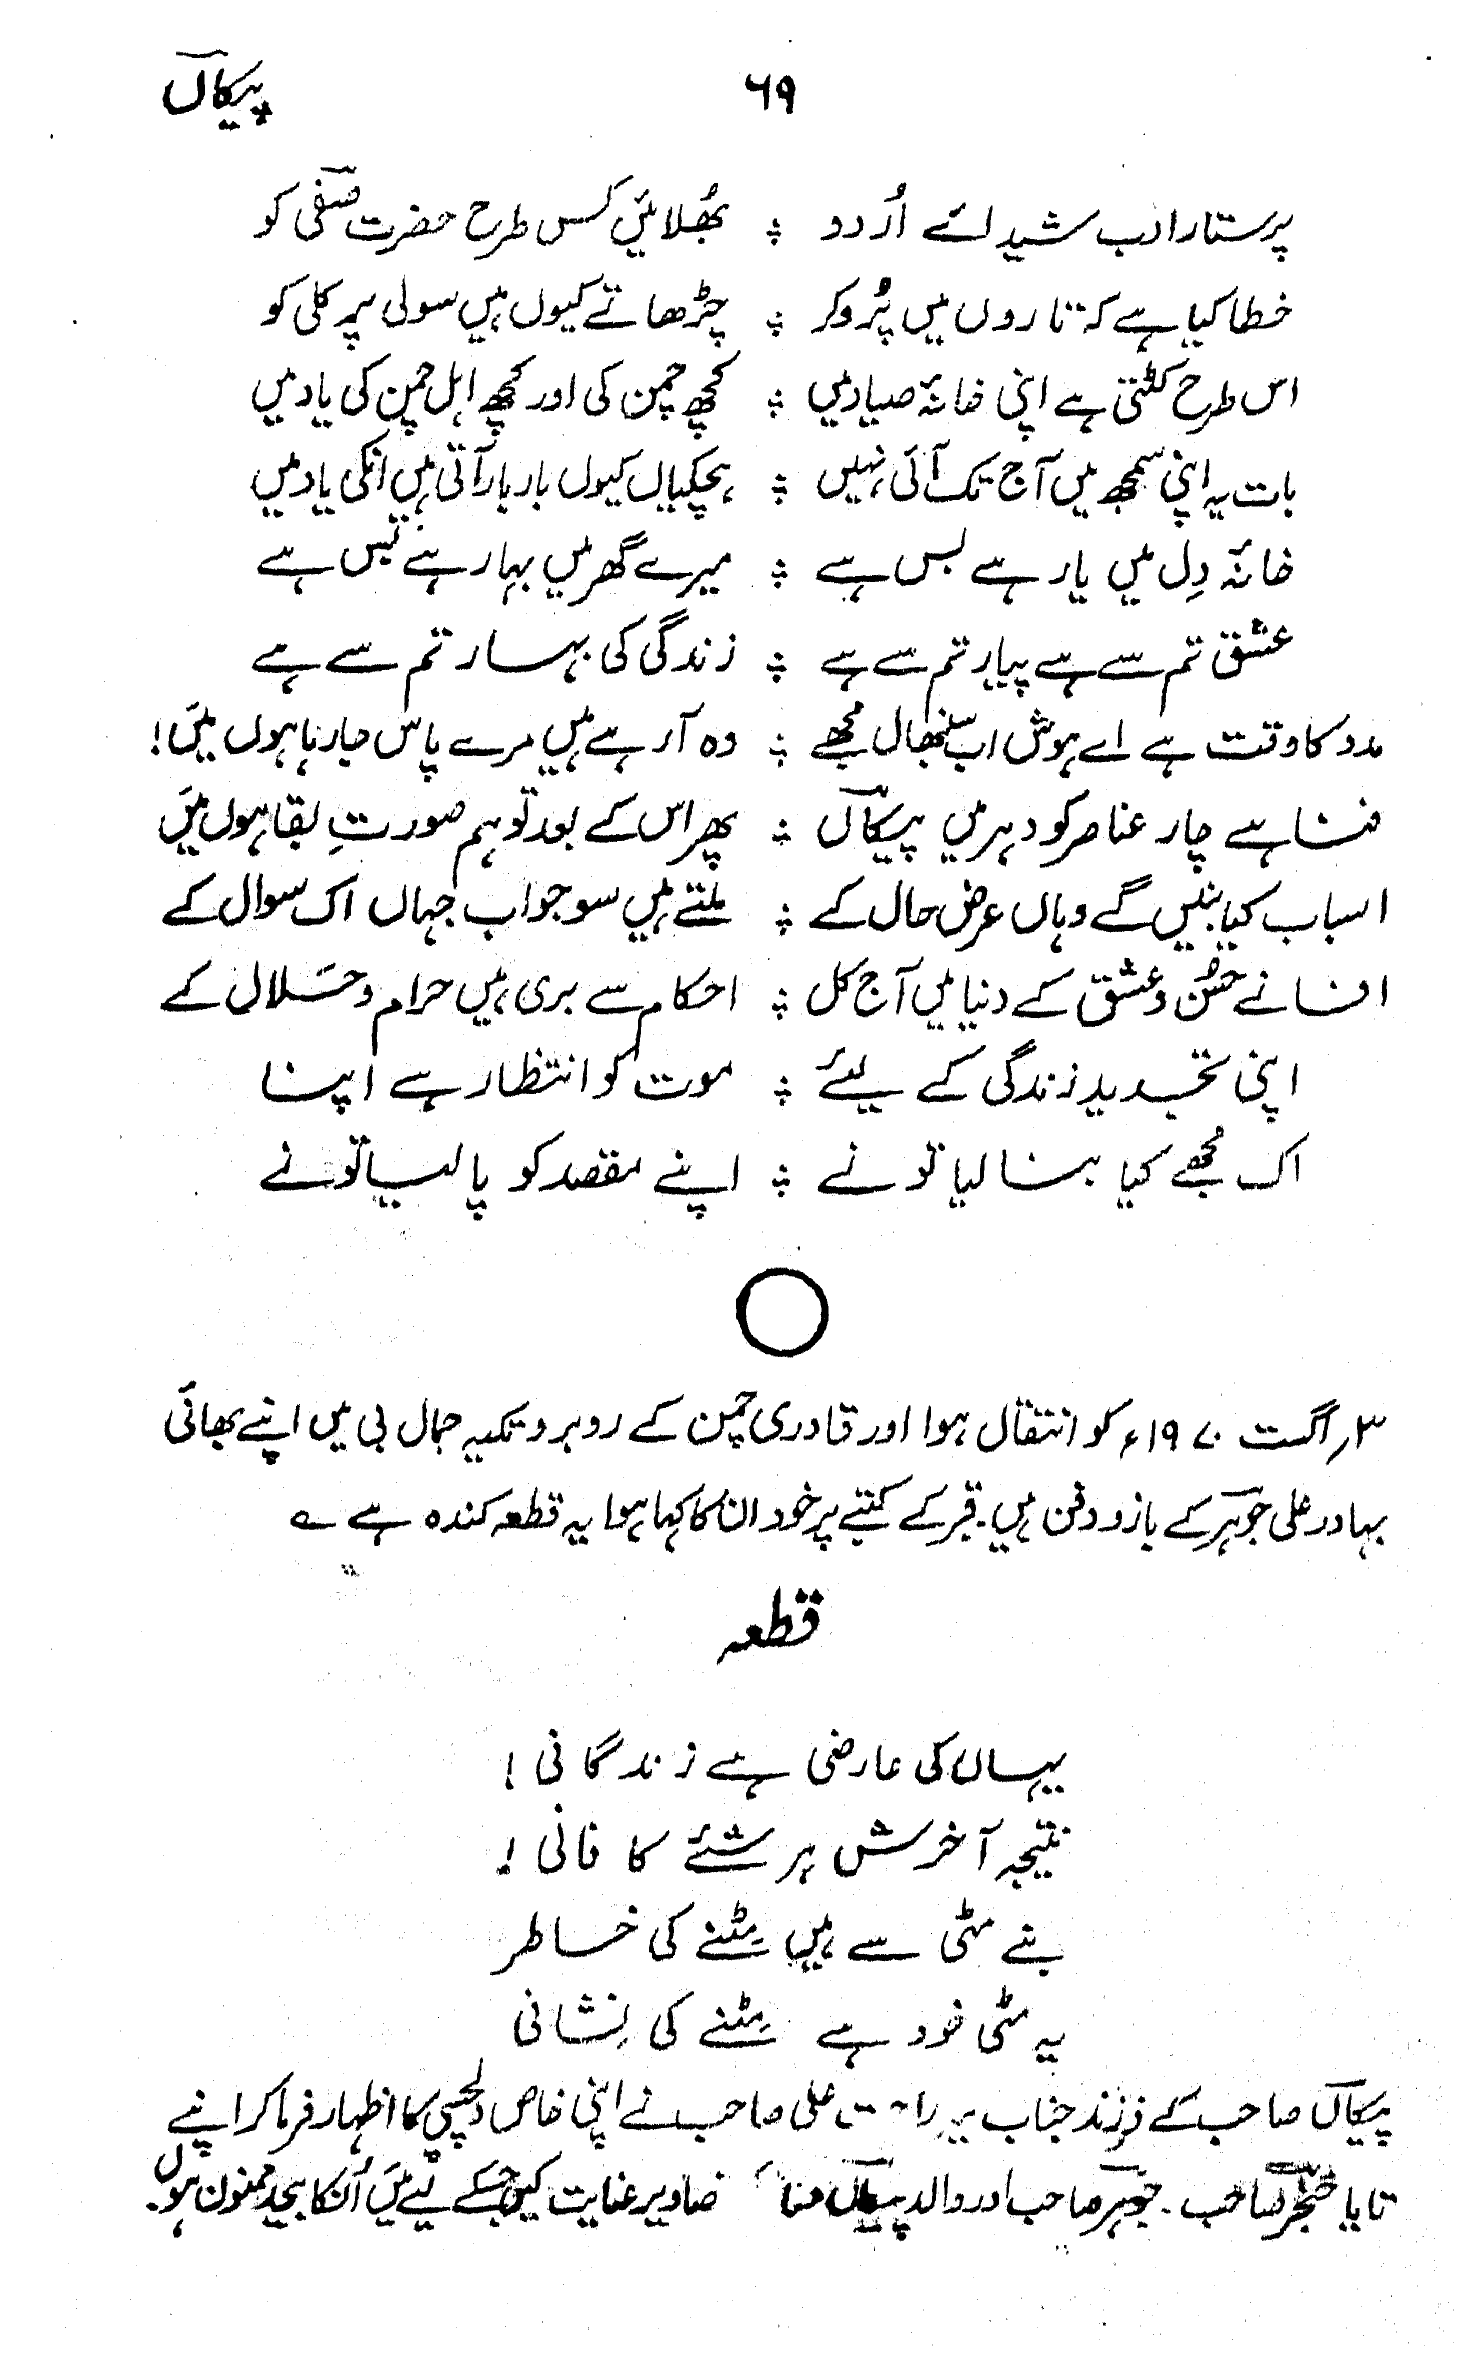 پیکاںؔ ۶۹
پرستار ادب شیدائے اُردو ؛ بھُلائیں کس طرح حضرت صفیؔ کو
خطا کیا ہے کہ تاروں میں پُرو کر ؛ چڑھاتے کیوں ہیں سولی پر کلی کو
اس طرح کٹتی ہے اپنی خانۂ صیاد میں ؛ کچھ چمن کی اور کچھ اہل چمن کی یاد میں
بات یہ اپنی سمجھ میں آج تک آئی نہیں ؛ ہچکیاں کیوں بار بار آتی ہیں انکی یاد میں
خانۂ دِل میں یار ہے بس ہے ؛ میرے گھر میں بہار ہے بس ہے
عشق تم سے ہے پیار تم سے ہے ؛ زندگی کی بہار تم سے ہے
مدد کا وقت ہے اے ہوش اب سنبھال مجھے ؛ وہ آرہے ہیں مرے پاس جارہا ہوں میَں!
فنا ہے چار عناصر کو دہر میں پیکاںؔ ؛ پھر اس کے بعد تو ہم صورتِ بقا ہوں میَں
اسباب کیا بنیں گے وہاں عرض حال کے ؛ ملتے ہیں سو جواب جہاں اک سوال کے
افسانے حسُن و عشق کے دنیا میں آج کل ؛ احکام سے بری ہیں حرام و حَلال کے
اپنی تجدید زندگی کے لیئے ؛ موت کو انتظار ہے اپنا
اک مُجھے کیا بنا لیا تو نے ؛ اپنے مقصد کو پا لیا تو نے
۳؍اگست ۱۹۷۰ء کو انتقال ہوا اور قادری چمن کے روبرو تکیہ جمال بی میں اپنے بھائی
بہادر علی جوہرؔ کے بازو دفن ہیں۔ قبر کے کتبے پر خود ان کا کہا ہوا یہ قطعہ کندہ ہے ؎
قطعہ
یہاں کی عارضی ہے زندگانی!
نتیجہ آخرش ہر شئے کا فانی!
بنے مٹی سے ہیں مِٹنے کی خاطر
یہ مٹی خود ہے مِٹنے کی نِشانی
پیکاںؔ صاحب کے فرزند جناب علی صاحب نے اپنی خاص دلچسپی کا اظہار فرما کر اپنے
تایا خنجرؔ صاحب۔ جوہرؔ صاحب اور والد پیکاںؔ عنایت کیں جسکے لیے میَں اُنکا بیحد ممنون ہوں۔